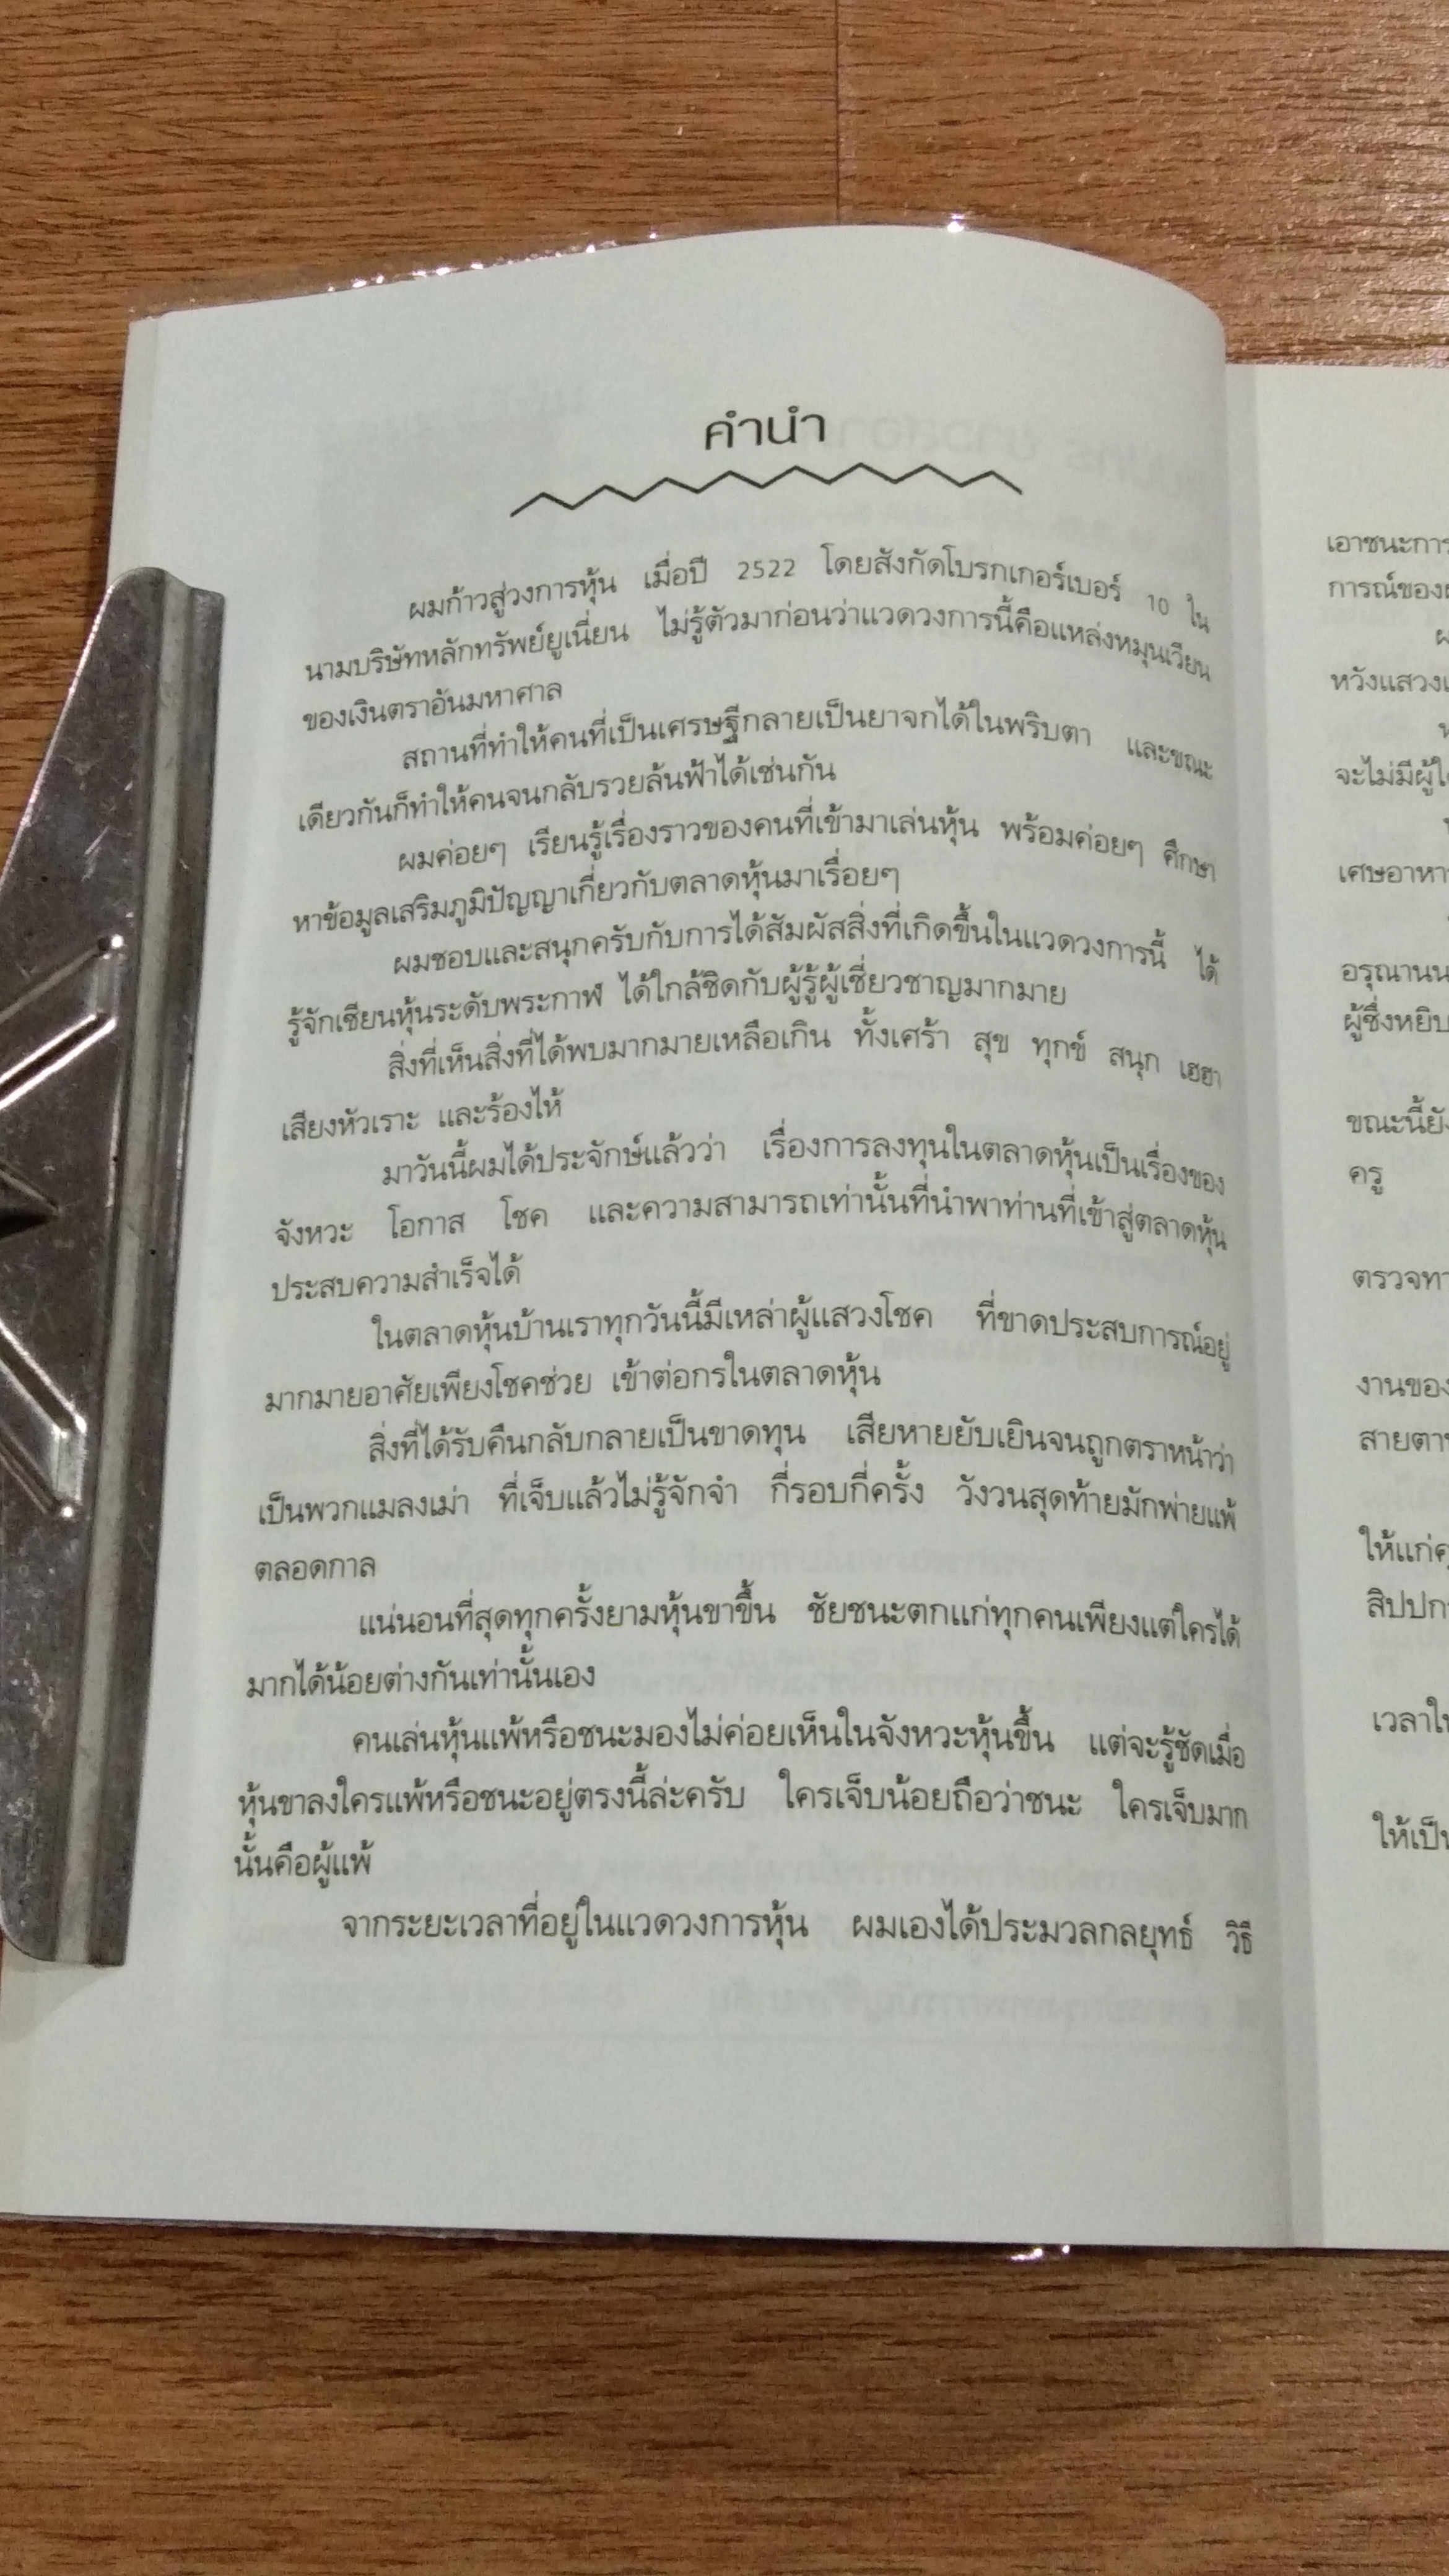 คำนำ
ผมก้าวสู่วงการหุ้น เมื่อปี 2522 โดยสังกัดโบรกเกอร์เบอร์ 10 ใน
นามบริษัทหลักทรัพย์ยูเนี่ยน ไม่รู้ตัวมาก่อนว่าแวดวงการนี้คือแหล่งหมุนเวียน
ของเงินตราอันมหาศาล
สถานที่ทำให้คนที่เป็นเศรษฐีกลายเป็นยาจกได้ในพริบตา และขณะ
เดียวกันก็ทำให้คนจนกลับรวยล้นฟ้าได้เช่นกัน
ผมค่อยๆ เรียนรู้เรื่องราวของคนที่เข้ามาเล่นหุ้น พร้อมค่อยๆ ศึกษา
หาข้อมูลเสริมภูมิปัญญาเกี่ยวกับตลาดหุ้นมาเรื่อยๆ
ผมชอบและสนุกครับกับการได้สัมผัสสิ่งที่เกิดขึ้นในแวดวงการนี้ ได้
รู้จักเซียนหุ้นระดับพระกาฬ ได้ใกล้ชิดกับผู้รู้ผู้เชี่ยวชาญมากมาย
สิ่งที่เห็นสิ่งที่ได้พบมากมายเหลือเกิน ทั้งเศร้า สุข ทุกข์ สนุก เฮฮา
เสียงหัวเราะ และร้องไห้
มาวันนี้ผมได้ประจักษ์แล้วว่า เรื่องการลงทุนในตลาดหุ้นเป็นเรื่องของ
จังหวะ โอกาส โชค และความสามารถเท่านั้นที่นำพาท่านที่เข้าสู่ตลาดหุ้น
ประสบความสำเร็จได้
ในตลาดหุ้นบ้านเราทุกวันนี้มีเหล่าผู้แสวงโชค ที่ขาดประสบการณ์อยู่
มากมายอาศัยเพียงโชคช่วย เข้าต่อกรในตลาดหุ้น
สิ่งที่ได้รับคืนกลับกลายเป็นขาดทุน เสียหายยับเยินจนถูกตราหน้าว่า
เป็นพวกแมลงเม่า ที่เจ็บแล้วไม่รู้จักจำ กี่รอบกี่ครั้ง วังวนสุดท้ายมักพ่ายแพ้
ตลอดกาล
แน่นอนที่สุดทุกครั้งยามหุ้นขาขึ้น ชัยชนะตกแก่ทุกคนเพียงแต่ใครได้
มากได้น้อยต่างกันเท่านั้นเอง
คนเล่นหุ้นแพ้หรือชนะมองไม่ค่อยเห็นในจังหวะหุ้นขึ้น แต่จะรู้ชัดเมื่อ
หุ้นขาลงใครแพ้หรือชนะอยู่ตรงนี้ล่ะครับ ใครเจ็บน้อยถือว่าชนะ ใครเจ็บมาก
นั้นคือผู้แพ้
จากระยะเวลาที่อยู่ในแวดวงการหุ้น ผมเองได้ประมวลกลยุทธ์ วิธี
เอาชนะการ
การณ์ของ
หวังแสวง
จะไม่มีผู้ใ
เศษอาหา
อรุณานน
ผู้ซึ่งหยิบ
ขณะนี้ยัง
ครู
ตรวจทา
งานของ
สายตา
ให้แก่
สิปปก
เวลาใ
ให้เป็น